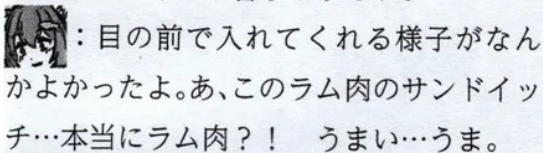 ：目の前で入れてくれる様子がなん
かよかったよ。あ、このラム肉のサンドイッ
チ…本当にラム肉？！　うまい…うま。